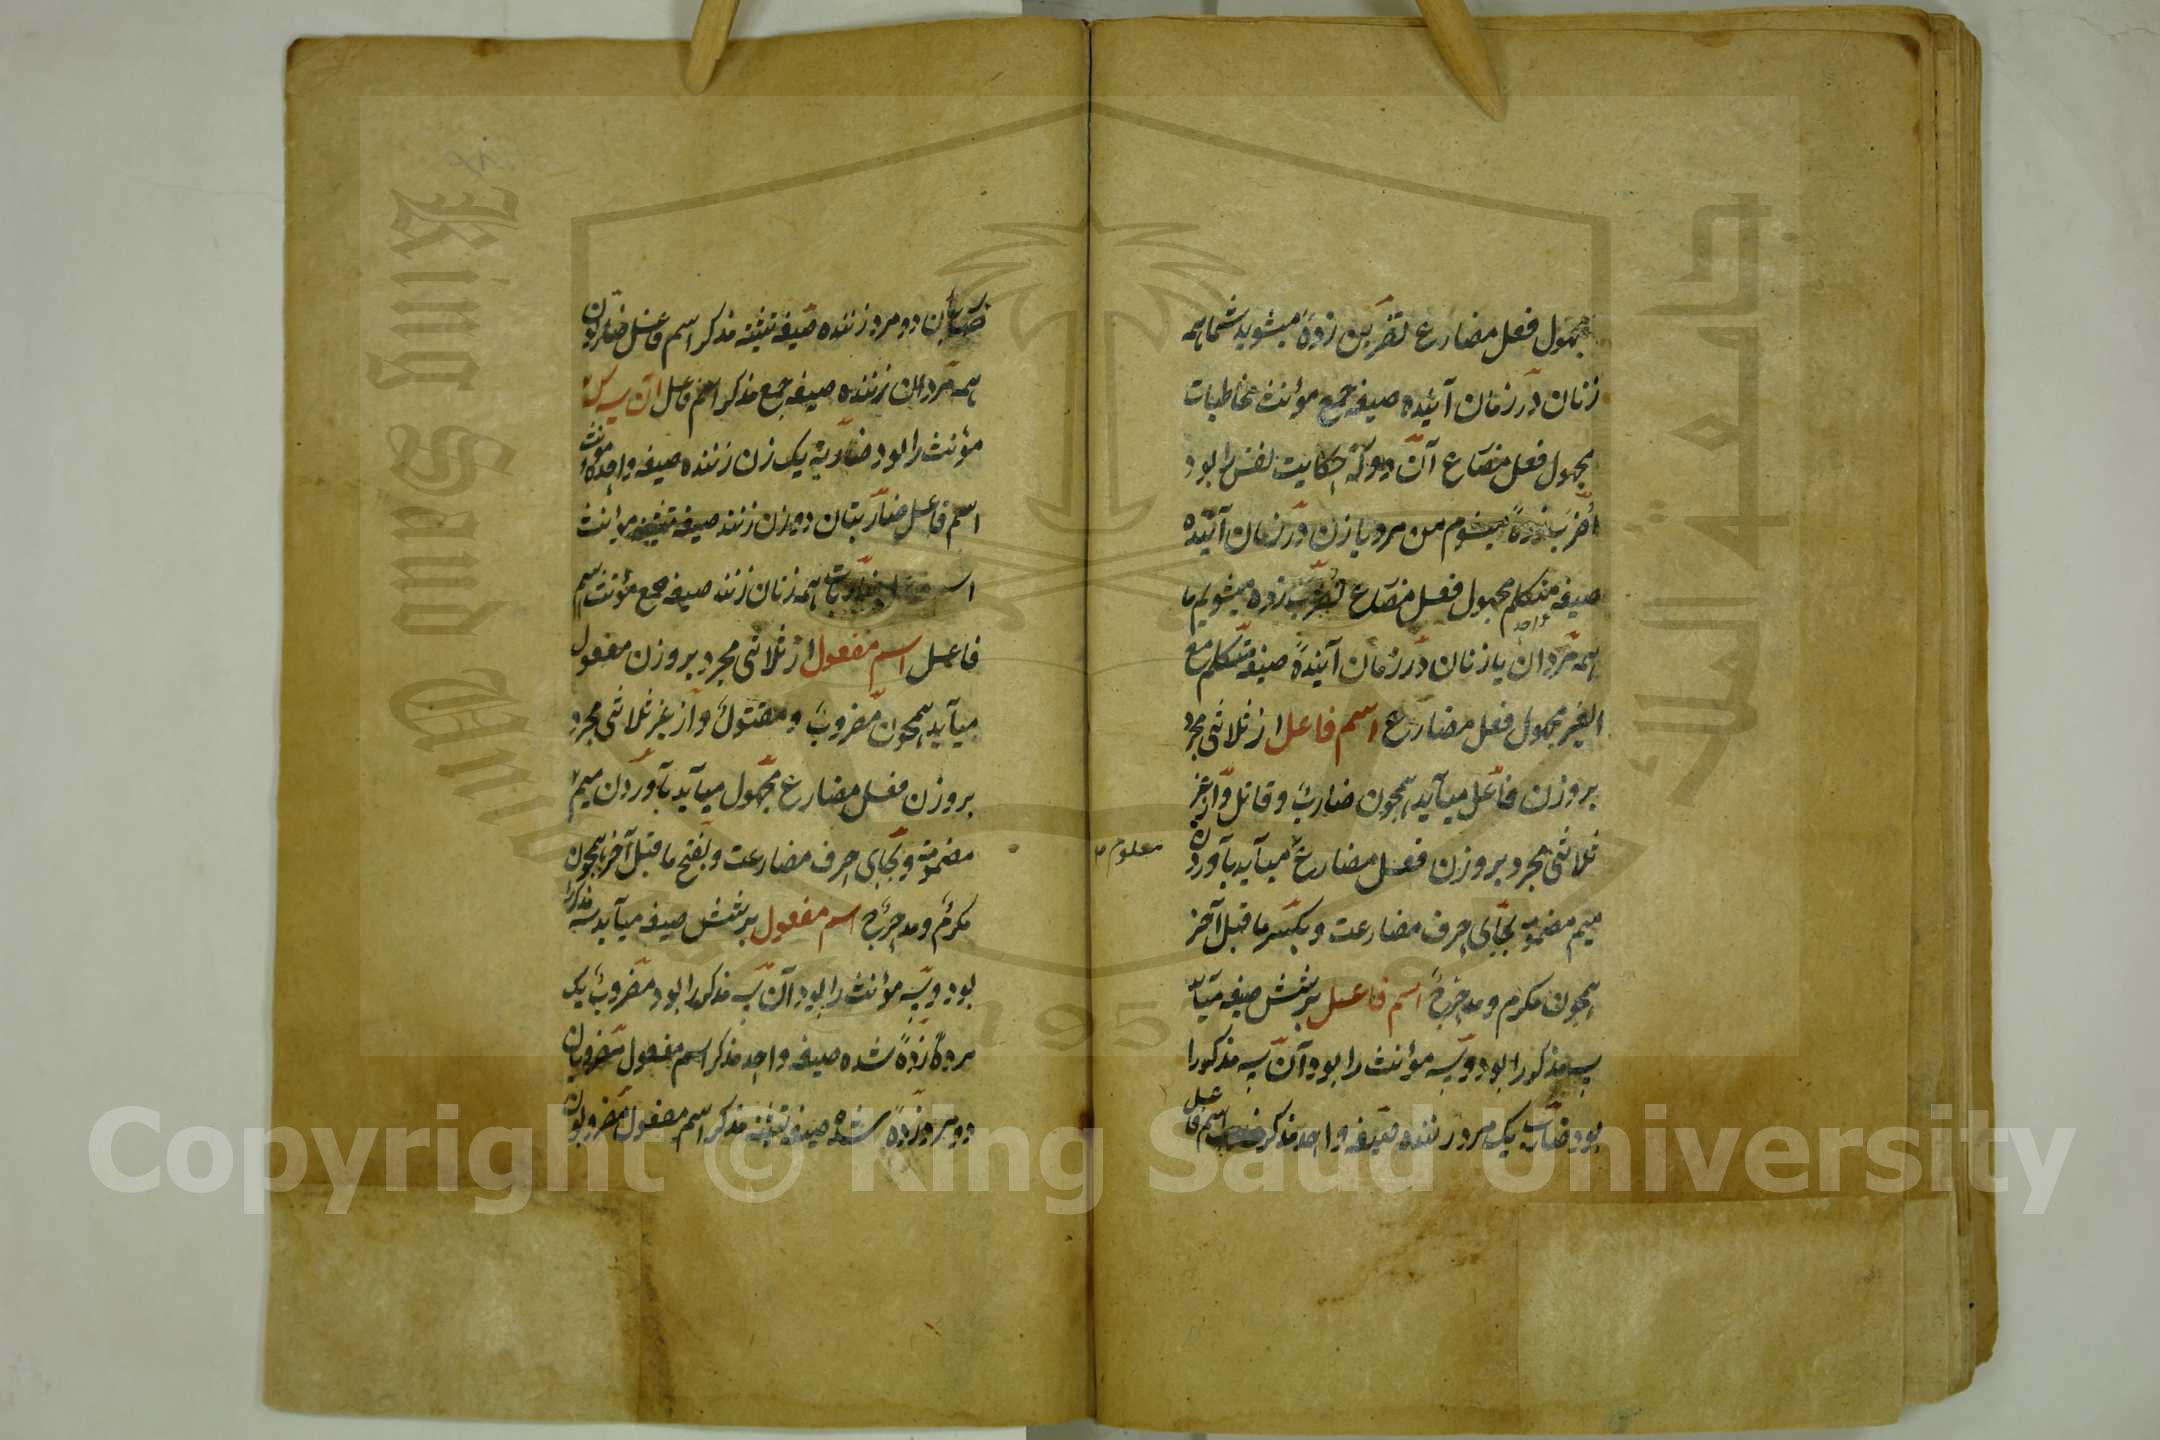 مجهول فعل مضارع تضربن زده میشوید شما همه
زنان در زمان آینده صیغه جمع مؤنث مخاطبات
مجهول فعل مضارع آن دو که حکایت نفس را بود
اضرب زده میشوم من مرد یا زن در زمان آینده
صیغه متکلم واحد مجهول فعل مضارع نضرب زده میشویم ما
همه مردان یا زنان در زمان آینده صیغه متکلم مع
الغیر مجهول فعل مضارع اسم فاعل از ثلاثی مجرد
بر وزن فاعل میآید همچون ضارب و قاتل و از غیر
ثلاثی مجرد بر وزن فعل مضارع میآید بآوردن
معلوم
میم مضمومه بجای حرف مضارعت و بکسر ما قبل آخر
همچون مکرم و مدحرج اسم فاعل بر شش صیغه میآید
سه مذکر را بود و سه مؤنث را بود آن سه مذکر را
بود ضارب یک مرد زننده صیغه واحد مذکر اسم فاعل
ضاربان دو مرد زننده صیغه تثنیه مذکر اسم فاعل ضاربون
همه مردان زننده صیغه جمع مذکر اسم فاعل آن سه که
مؤنث را بود ضاربة یک زن زننده صیغه واحده مؤنث
اسم فاعل ضاربتان دو زن زننده صیغه تثنیه مؤنث
اسم فاعل ضاربات همه زنان زننده صیغه جمع مؤنث اسم
فاعل اسم مفعول از ثلاثی مجرد بر وزن مفعول
میآید همچون مضروب و مقتول و از غیر ثلاثی مجرد
بر وزن فعل مضارع مجهول میآید بآوردن میم
مضمومه و بجای حرف مضارعت و بفتح ما قبل آخر همچون
مکرم و مدحرج اسم مفعول بر شش صیغه میآید سه مذکر را
بود و سه مؤنث را بود آن سه مذکر را بود مضروب یک
مرد زده شده صیغه واحد مذکر اسم مفعول مضروبان
دو مرد زده شده صیغه تثنیه مذکر اسم مفعول مضروبون
King Saud University
جامعة الملك سعود
1957
Copyright © King Saud University